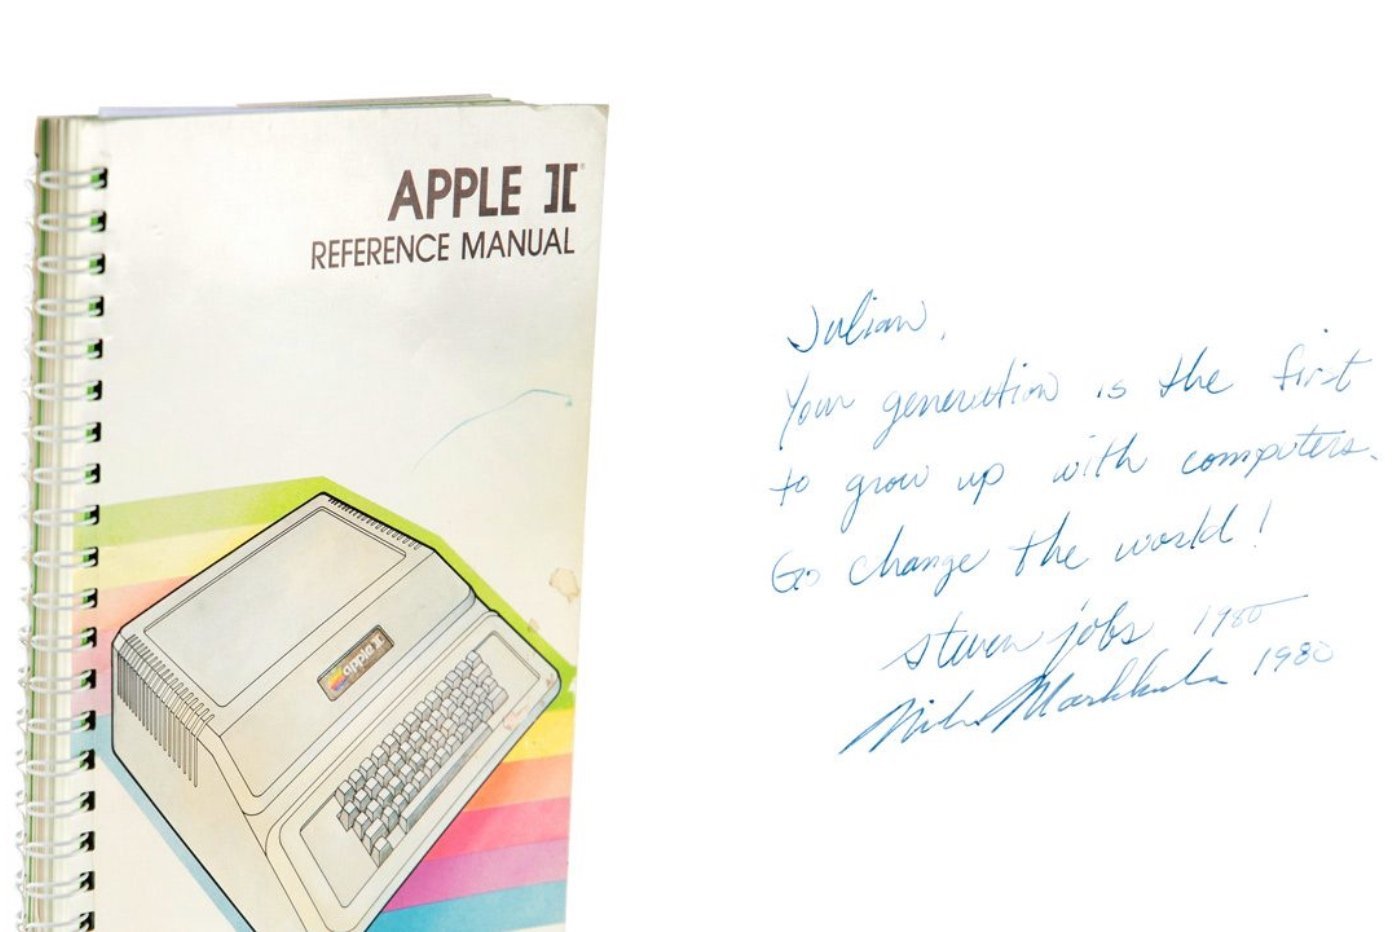 APPLE ][®
REFERENCE MANUAL
apple ][
Julian,
Your generation is the first
to grow up with computers.
Go change the world!
steven jobs 1980
Mike Markkula 1980